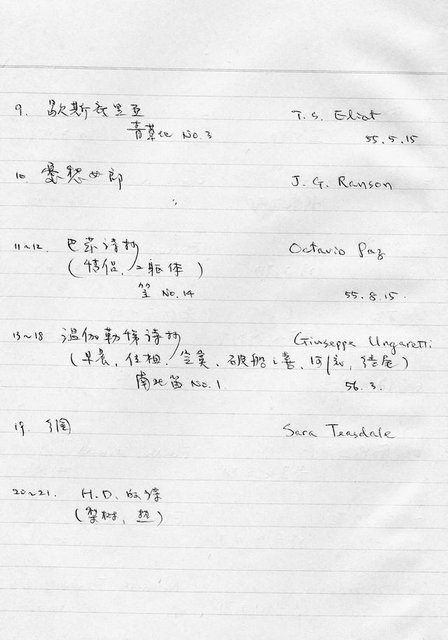 9. 歐斯茂里亞 T. S. Eliot
青草地 No. 3 55. 5. 15
10 憂愁女郎 J. G. Ranson
11~12 巴茲詩抄 Octavio Paz
(情侶, 二軀体)
笠 No. 14 55. 8. 15.
13~18 溫伽勒蒂詩抄 Giuseppe Ungaretti
(早晨, 住相, 破船之喜, 河流, 結尾)
南北笛 No. 1 56. 3.
19. Sara Teasdale
20~21. H. D. 的詩
(梨樹, 熱)